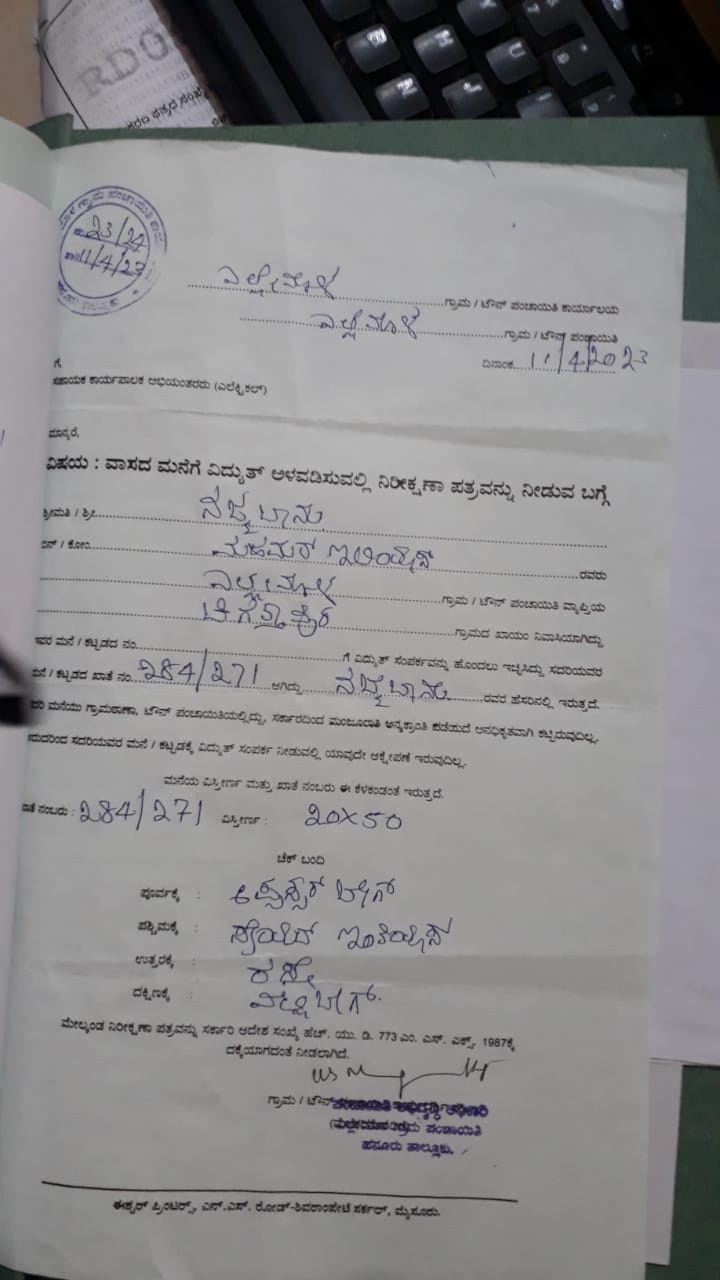 RDG
ಗ್ರಾಮ ಪಂಚಾಯಿತಿ
23/24
11/4/23
ಎಲ್ಲೇಮಾಳ ಗ್ರಾಮ / ಟೌನ್ ಪಂಚಾಯಿತಿ ಕಾರ್ಯಾಲಯ
ಎಲ್ಲೇಮಾಳ ಗ್ರಾಮ / ಟೌನ್ ಪಂಚಾಯಿತಿ
ದಿನಾಂಕ 11/4/2023
ಗೆ,
ಸಹಾಯಕ ಕಾರ್ಯಪಾಲಕ ಅಭಿಯಂತರರು (ಎಲೆಕ್ಟ್ರಿಕಲ್)
ಮಾನ್ಯರೆ,
ವಿಷಯ : ವಾಸದ ಮನೆಗೆ ವಿದ್ಯುತ್ ಅಳವಡಿಸುವಲ್ಲಿ ನಿರೀಕ್ಷಣಾ ಪತ್ರವನ್ನು ನೀಡುವ ಬಗ್ಗೆ
ಶ್ರೀಮತಿ / ಶ್ರೀ. ನಜ್ಮಬಾನು
ಬಿನ್ / ಕೋಂ. ಮಹಮದ್ ಇಲಿಯಾಸ್ ರವರು
ಎಲ್ಲೇಮಾಳ ಗ್ರಾಮ / ಟೌನ್ ಪಂಚಾಯಿತಿ ವ್ಯಾಪ್ತಿಯ
ಗ್ರಾಮದ ಖಾಯಂ ನಿವಾಸಿಯಾಗಿದ್ದು
ಇವರ ಮನೆ / ಕಟ್ಟಡದ ನಂ. ಗೆ ವಿದ್ಯುತ್ ಸಂಪರ್ಕವನ್ನು ಹೊಂದಲು ಇಚ್ಛಿಸಿದ್ದು ಸದರಿಯವರ
ಮನೆ / ಕಟ್ಟಡದ ಖಾತೆ ನಂ. 284/271 ಆಗಿದ್ದು ನಜ್ಮಬಾನು ರವರ ಹೆಸರಿನಲ್ಲಿ ಇರುತ್ತದೆ.
ಮನೆಯು ಗ್ರಾಮಠಾಣಾ, ಟೌನ್ ಪಂಚಾಯಿತಿಯಲ್ಲಿದ್ದು, ಸರ್ಕಾರದಿಂದ ಮಂಜೂರಾತಿ ಅನ್ಯಕ್ರಾಂತಿ ಪಡೆಯದೆ ಅನಧಿಕೃತವಾಗಿ ಕಟ್ಟಿರುವುದಿಲ್ಲ.
ಸದರಿಯವರ ಮನೆ / ಕಟ್ಟಡಕ್ಕೆ ವಿದ್ಯುತ್ ಸಂಪರ್ಕ ನೀಡುವಲ್ಲಿ ಯಾವುದೇ ಆಕ್ಷೇಪಣೆ ಇರುವುದಿಲ್ಲ.
ಮನೆಯ ವಿಸ್ತೀರ್ಣ ಮತ್ತು ಖಾತೆ ನಂಬರು ಈ ಕೆಳಕಂಡಂತೆ ಇರುತ್ತದೆ.
ಖಾತೆ ನಂಬರು : 284/271 ವಿಸ್ತೀರ್ಣ : 20x50
ಚೆಕ್ ಬಂದಿ
ಪೂರ್ವಕ್ಕೆ : ಬೇಗ್
ಪಶ್ಚಿಮಕ್ಕೆ : ಇಂತಿಯಾಸ್
ಉತ್ತರಕ್ಕೆ : ರಸ್ತೆ
ದಕ್ಷಿಣಕ್ಕೆ :
ಮೇಲ್ಕಂಡ ನಿರೀಕ್ಷಣಾ ಪತ್ರವನ್ನು ಸರ್ಕಾರಿ ಆದೇಶ ಸಂಖ್ಯೆ ಹೆಚ್. ಯು. ಡಿ. 773 ಎಂ. ಎಸ್. ಎಕ್ಸ್. 1987ಕ್ಕೆ
ದಕ್ಕೆಯಾಗದಂತೆ ನೀಡಲಾಗಿದೆ.
ಗ್ರಾಮ / ಟೌನ್ ಪಂಚಾಯಿತಿ ಅಭಿವೃದ್ಧಿ ಅಧಿಕಾರಿ
ಗ್ರಾಮ ಪಂಚಾಯಿತಿ
ಹನೂರು ತಾಲ್ಲೂಕು.
ಈಶ್ವರ್ ಪ್ರಿಂಟರ್ಸ್, ಎನ್.ಎಸ್. ರೋಡ್-ಶಿವರಾಂಪೇಟೆ ಸರ್ಕಲ್, ಮೈಸೂರು.